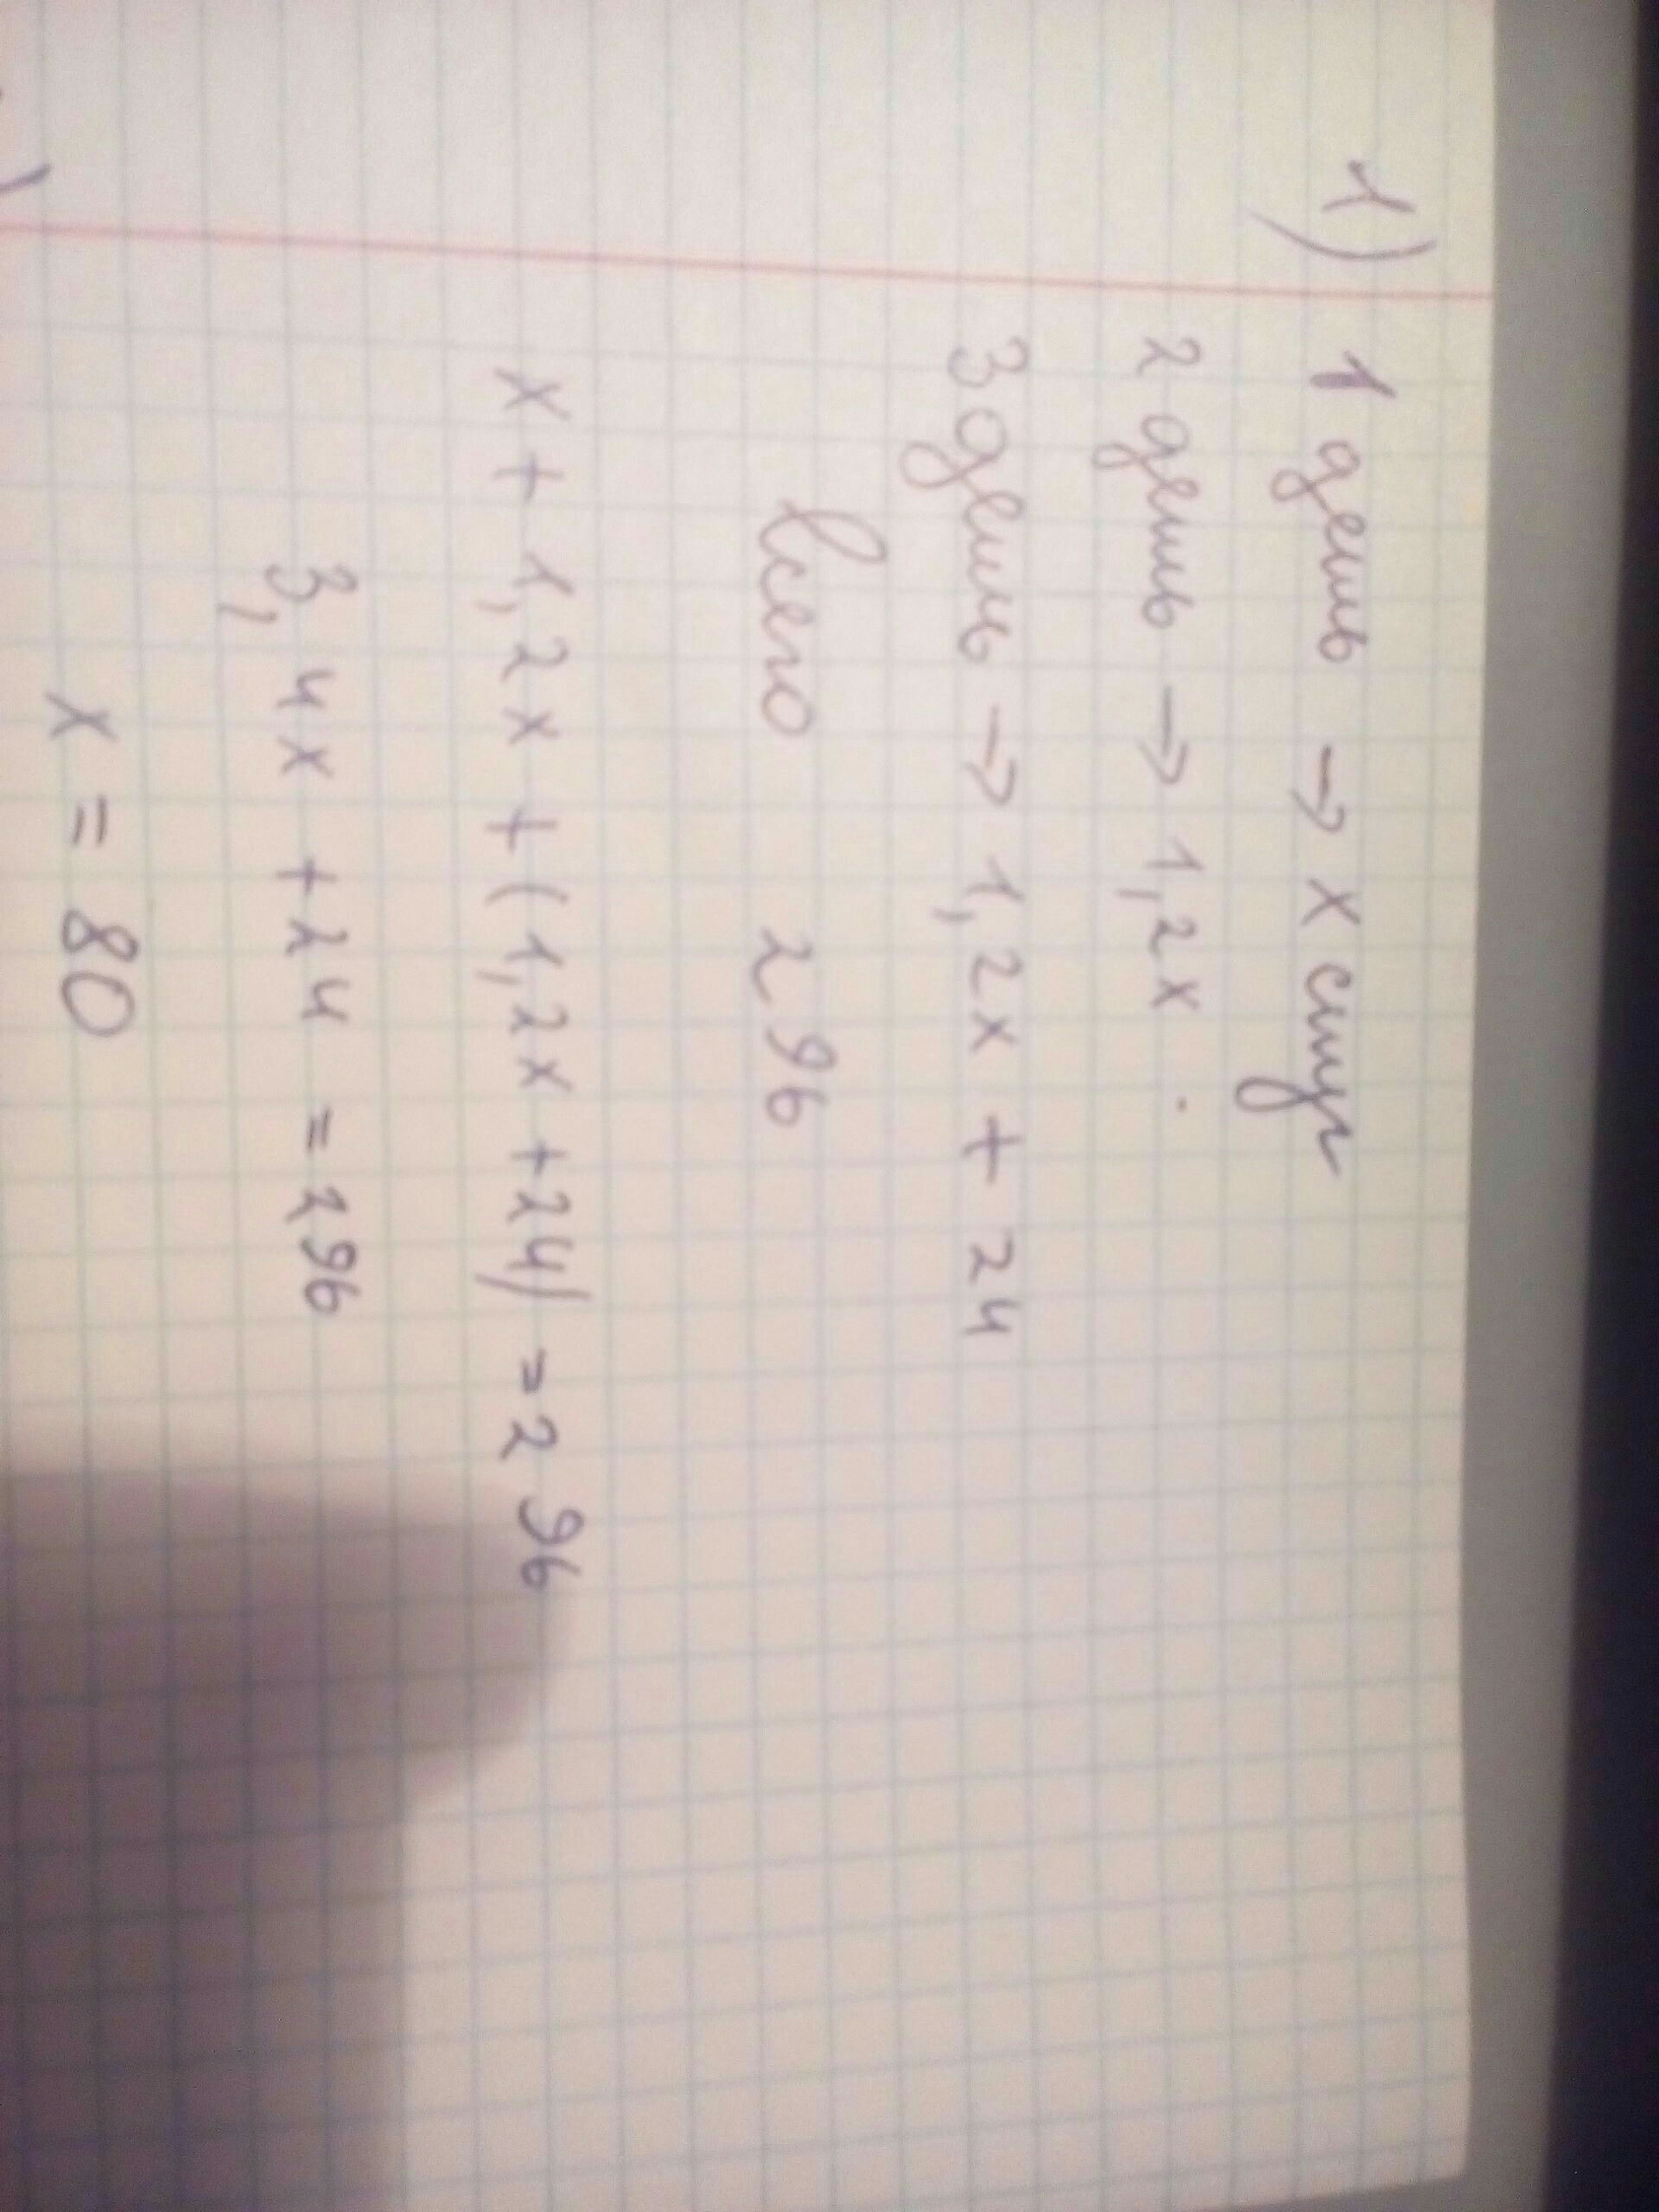 1) 1 день → x слуг
2 день → 1,2x
3 день → 1,2x + 24
Всего 296
x + 1,2x + (1,2x + 24) = 296
3,4x + 24 = 296
x = 80